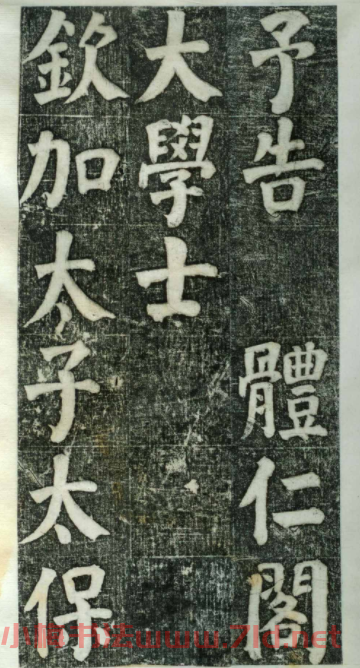 予告 體仁閣
大學士
欽加太子太保
小楷书法www.7ld.net